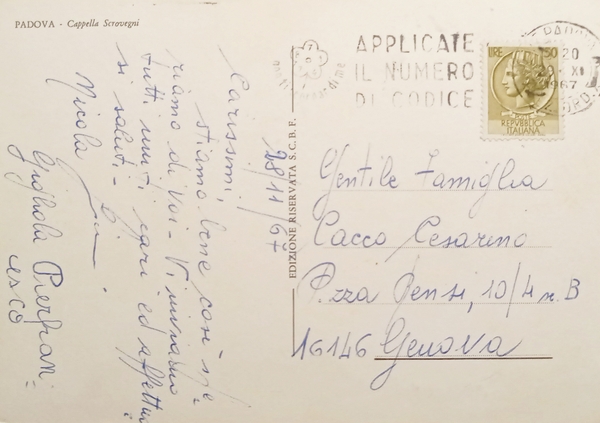 PADOVA - Cappella Scrovegni
28/11/67
Carissimi,
stiamo bene così spe
riamo di Voi - Vi inviamo
tutti uniti cari ed affettuo
si saluti -
Nicola
Pierfran=
cesco
EDIZIONE RISERVATA S.C.B.F.
APPLICATE
IL NUMERO
DI CODICE
PADOVA
20
XI
1967
LIRE 50
REPVBBLICA
ITALIANA
Gentile Famiglia
Cacco Cesarino
P.zza Pensi, 10/4 n. B
16146 Genova